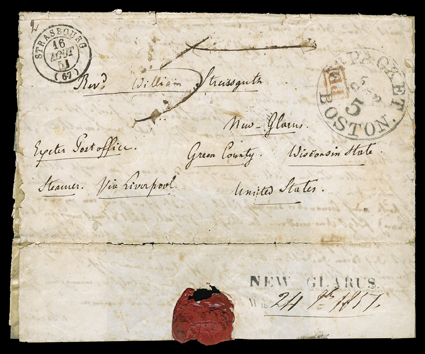 STRASBOURG
16
AOUT
51
(67)
Br. PACKET
5
SEP
5
BOSTON.
Revd William Streissguth
New-Glarus.
Exeter Post office.
Green County. Wisconsin State.
Steamer. Via Liverpool
United States.
NEW GLARUS
24